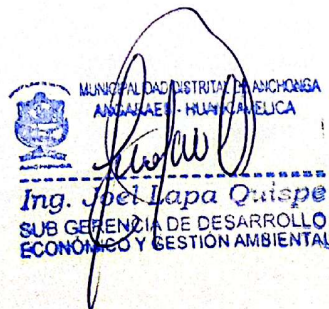 MUNICIPALIDAD DISTRITAL DE ANCHONGA
ANGARAES - HUANCAVELICA
Ing. Joel Lapa Quispe
SUB GERENCIA DE DESARROLLO
ECONÓMICO Y GESTIÓN AMBIENTAL